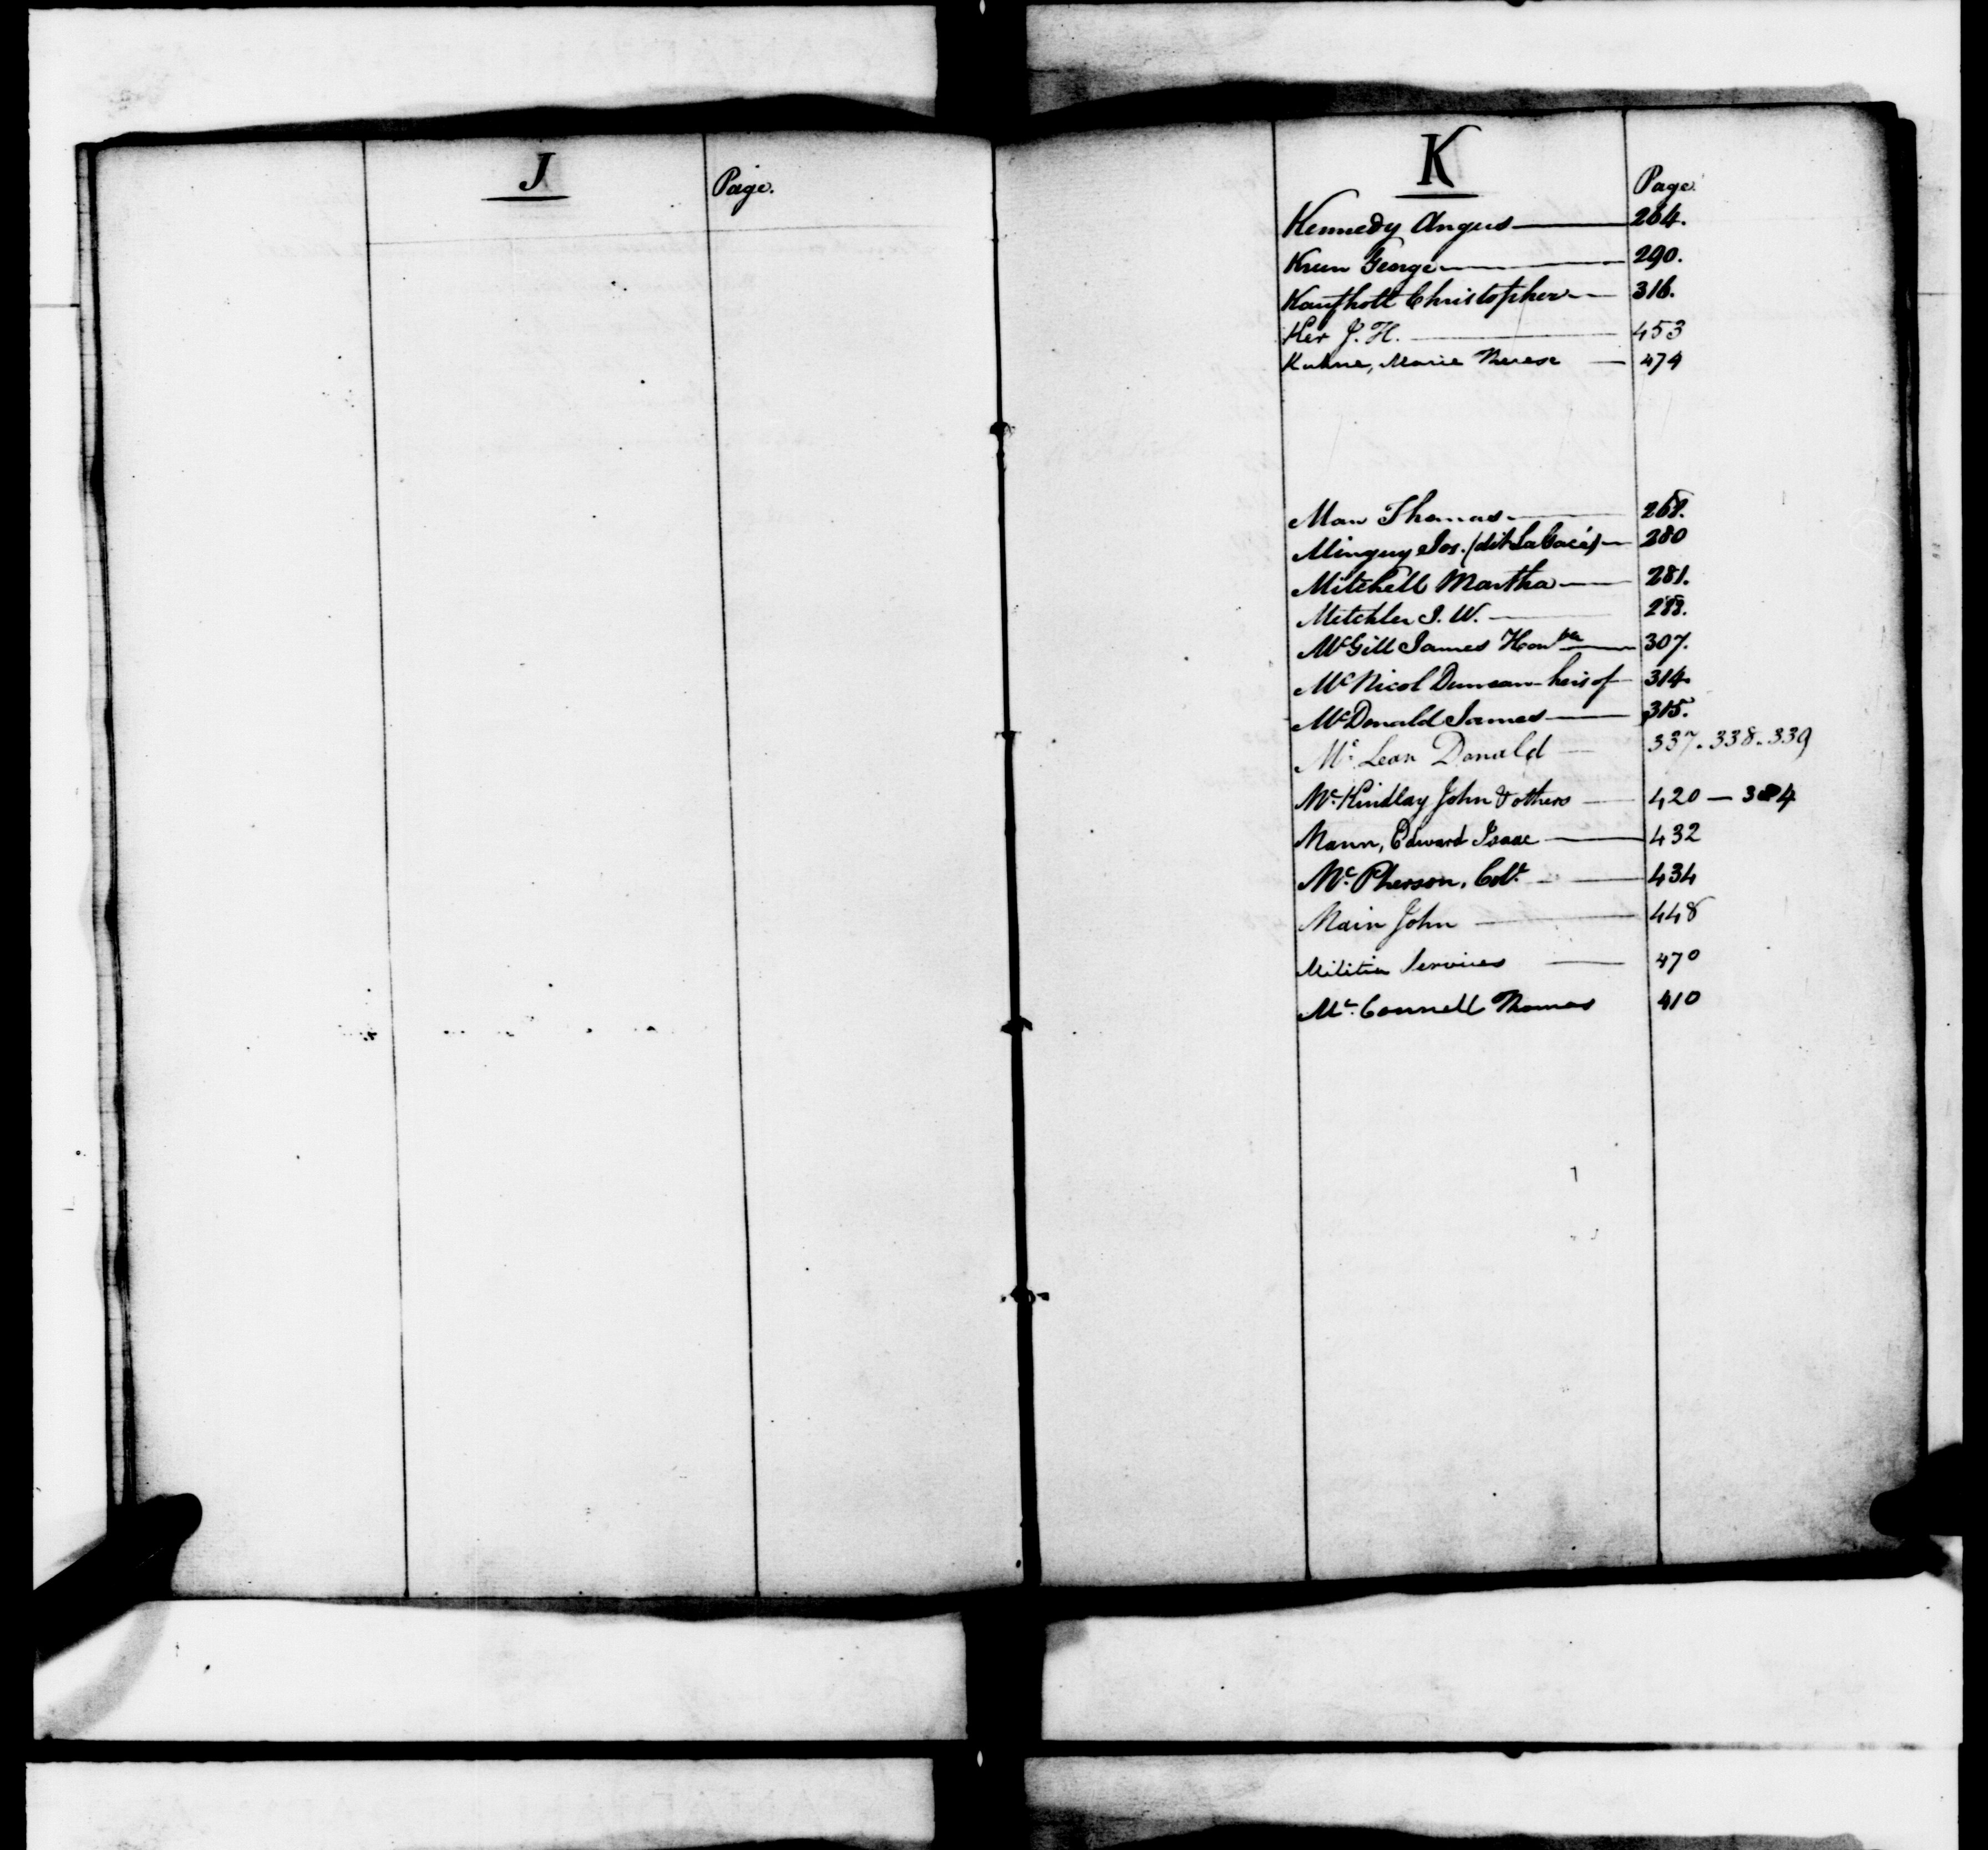 J
Page.
K
Page.
Kennedy Angus 264.
Krun George 290.
Kaufholt Christopher 316.
Ker J. H. 453
Kuhne, Marie Therese 474
Man Thomas 268.
Minguy Jos. (dit LaGacé) 280
Mitchell Martha 281.
Metchler J. W. 288.
McGill James Honble 307.
McNicol Duncan heirs of 314.
McDonald James 315.
Mc Lean Donald 337. 338. 339
Mc. Kindlay John & others 420 — 384
Mann, Edward Isaac 432
Mc. Pherson, 434
Main John 448
Militia Services 470
Mc. Connell Thomas 410